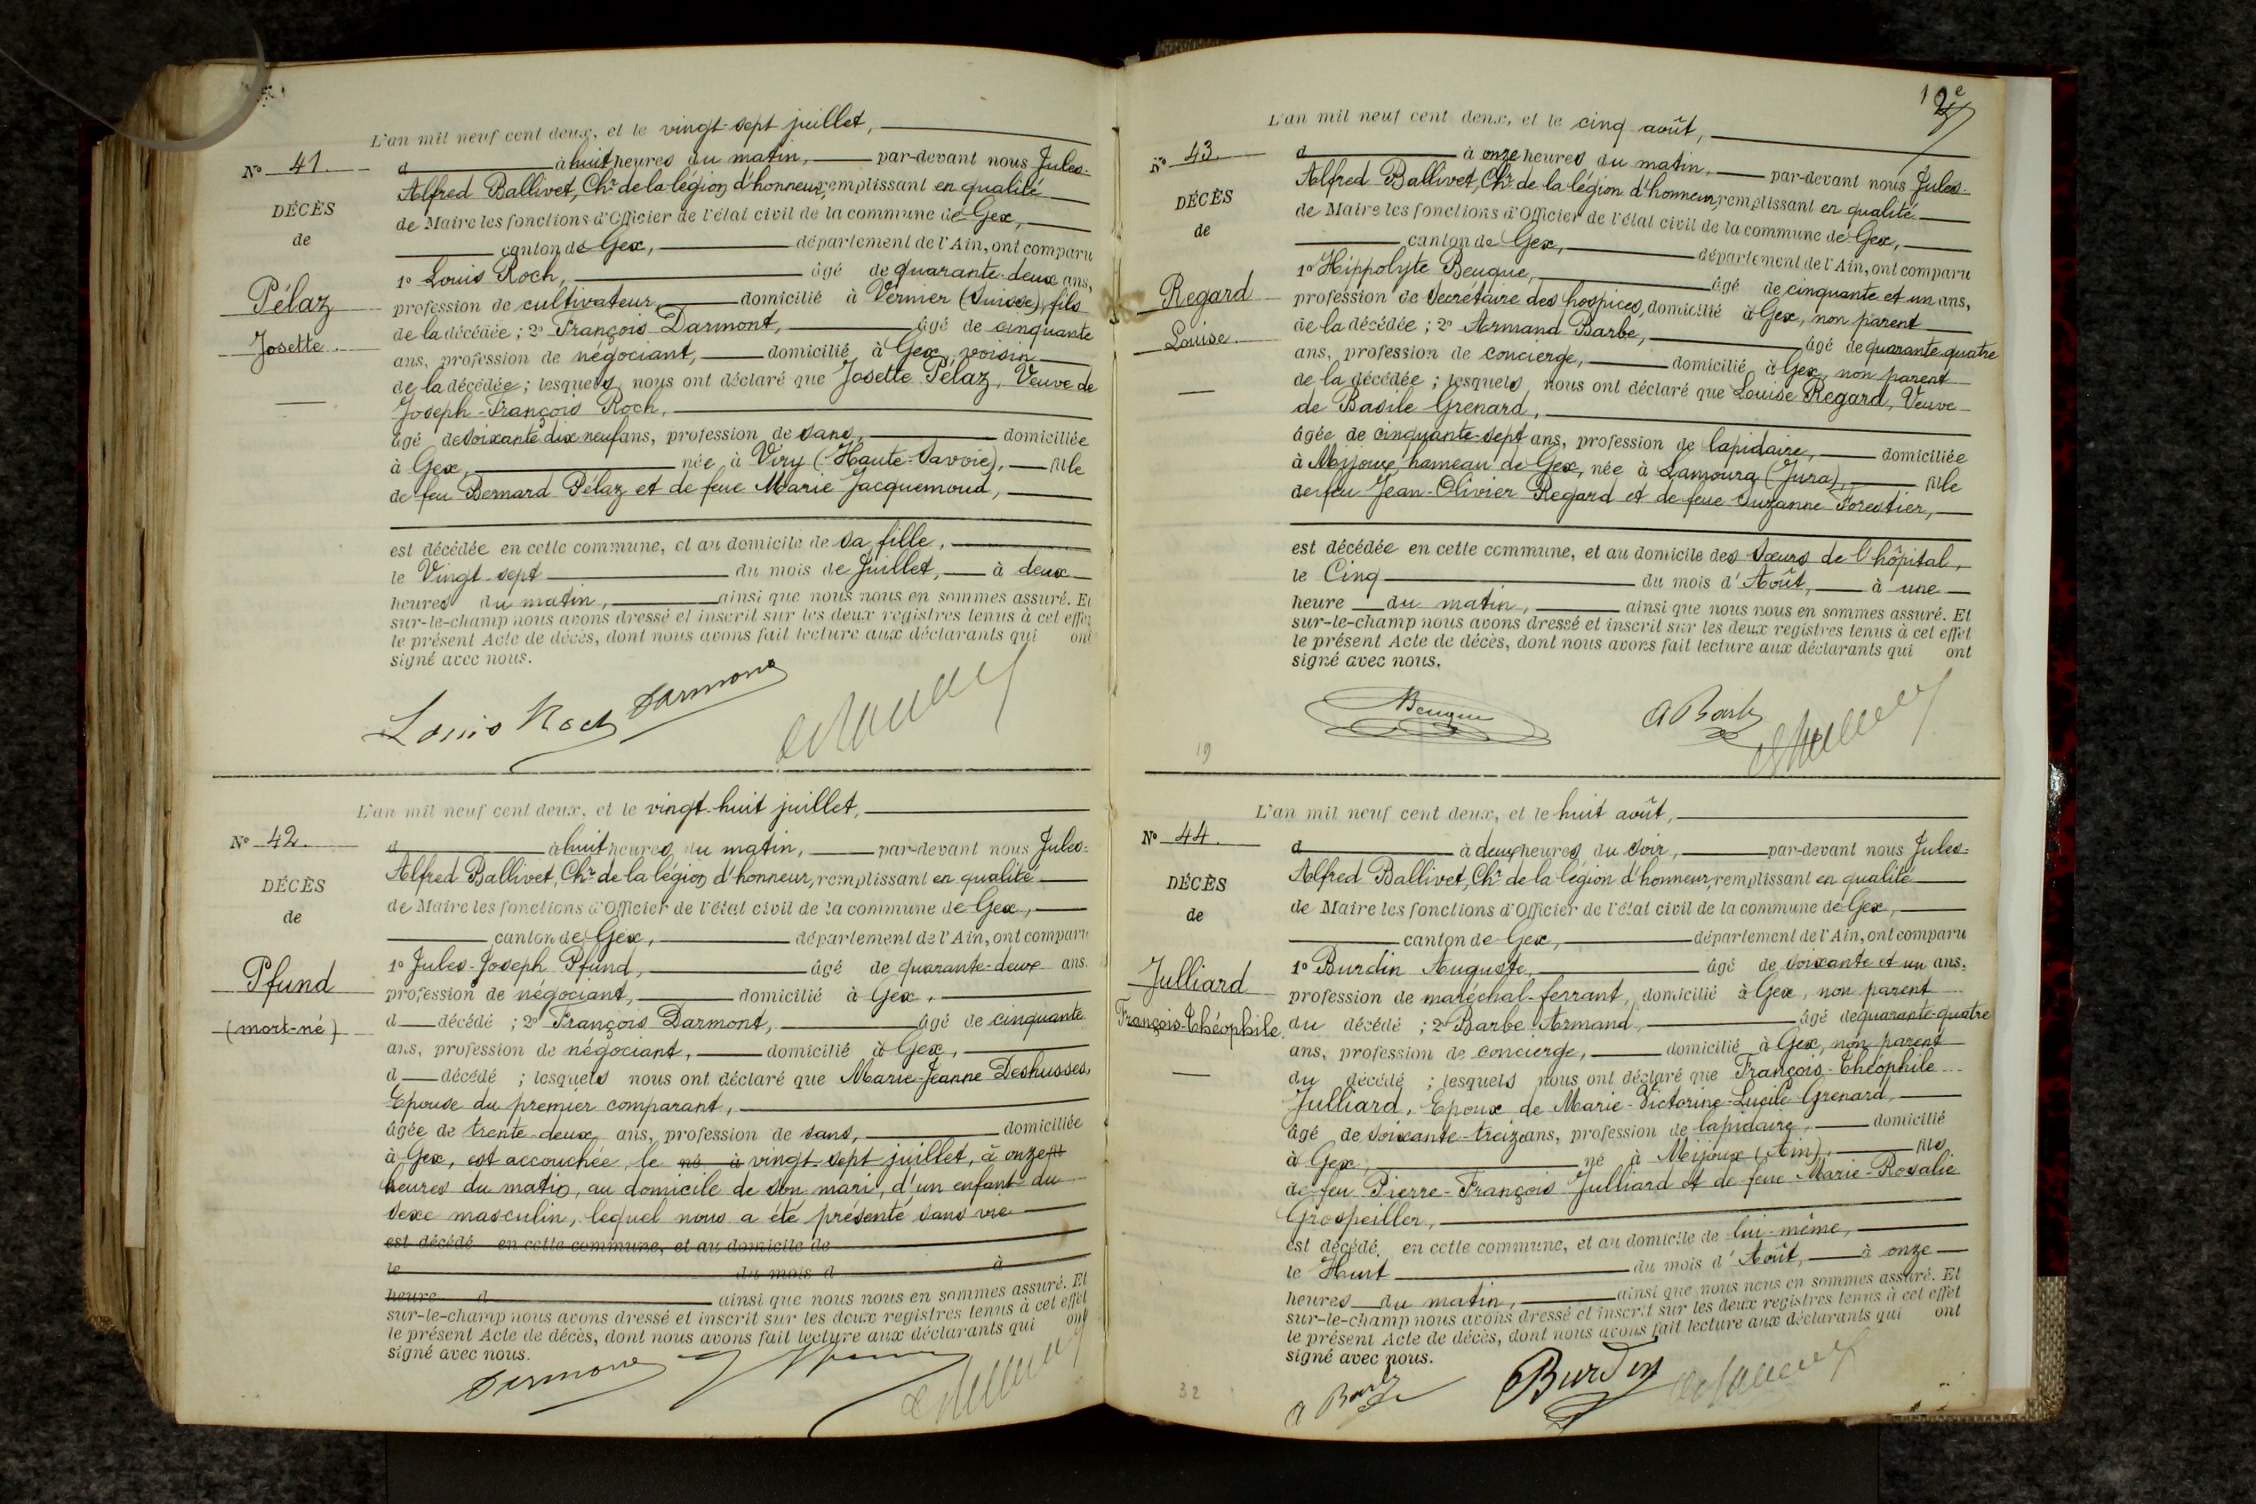 L'an mil neuf cent deux, et le vingt-sept juillet,
N° 41.
d à huit heures du matin, par-devant nous Jules-
Alfred Ballivet, Chr de la légion d'honneur, remplissant en qualité
DÉCÈS
de Maire les fonctions d'Officier de l'état civil de la commune de Gex,
de
canton de Gex, département de l'Ain, ont comparu
1° Louis Roch, âgé de quarante-deux ans,
Pélaz
profession de cultivateur, domicilié à Vernier (Suisse), fils
de la décédée ; 2° François Darmont, âgé de cinquante
Josette.
ans, profession de négociant, domicilié à Gex, voisin
de la décédée ; lesquels nous ont déclaré que Josette Pélaz, Veuve de
Joseph-François Roch,
âgé de soixante dix neuf ans, profession de sans, domiciliée
à Gex, née à Viry (Haute-Savoie), fille
de feu Bernard Pélaz et de feue Marie Jacquemoud,
est décédée en cette commune, et au domicile de sa fille,
le Vingt-sept du mois de Juillet, à deux
heures du matin, ainsi que nous nous en sommes assuré. Et
sur-le-champ nous avons dressé et inscrit sur les deux registres tenus à cet effet
le présent Acte de décès, dont nous avons fait lecture aux déclarants qui ont
signé avec nous.
Louis Roch Darmont
L'an mil neuf cent deux, et le vingt-huit juillet,
N° 42.
d à huit heures du matin, par-devant nous Jules-
Alfred Ballivet, Chr de la légion d'honneur, remplissant en qualité
DÉCÈS
de Maire les fonctions d'Officier de l'état civil de la commune de Gex,
de
canton de Gex, département de l'Ain, ont comparu
1° Jules-Joseph Pfund, âgé de quarante-deux ans.
Pfund
profession de négociant, domicilié à Gex,
(mort-né)
d décédé ; 2° François Darmont, âgé de cinquante
ans, profession de négociant, domicilié à Gex,
d décédé ; lesquels nous ont déclaré que Marie-Jeanne Deshusses,
Epouse du premier comparant,
âgée de trente-deux ans, profession de sans, domiciliée
à Gex, est accouchée, le né à vingt-sept juillet, à onze fil
heures du matin, au domicile de son mari, d'un enfant du
sexe masculin, lequel nous a été présenté sans vie
est décédé en cette commune, et au domicile de
le du mois d à
heure d ainsi que nous nous en sommes assuré. Et
sur-le-champ nous avons dressé et inscrit sur les deux registres tenus à cet effet
le présent Acte de décès, dont nous avons fait lecture aux déclarants qui ont
signé avec nous.
Darmont
L'an mil neuf cent deux, et le cinq août,
N° 43.
d à onze heures du matin, par-devant nous Jules-
Alfred Ballivet, Chr de la légion d'honneur, remplissant en qualité
DÉCÈS
de Maire les fonctions d'Officier de l'état civil de la commune de Gex,
de
canton de Gex, département de l'Ain, ont comparu
1° Hippolyte Beuque, âgé de cinquante et un ans,
Regard
profession de secrétaire des hospices, domicilié à Gex, non parent
de la décédée ; 2° Armand Barbe, âgé de quarante-quatre
Louise.
ans, profession de concierge, domicilié à Gex, non parent
de la décédée ; lesquels nous ont déclaré que Louise Regard, Veuve
de Basile Grenard,
âgée de cinquante-sept ans, profession de lapidaire, domiciliée
à Mijoux, hameau de Gex, née à Lamoura (Jura), fille
de feu Jean-Olivier Regard et de feue Suzanne Forestier,
est décédée en cette commune, et au domicile des Sœurs de l'hôpital,
le Cinq du mois d'Août, à une
heure du matin, ainsi que nous nous en sommes assuré. Et
sur-le-champ nous avons dressé et inscrit sur les deux registres tenus à cet effet
le présent Acte de décès, dont nous avons fait lecture aux déclarants qui ont
signé avec nous.
Beuque A Barbe
19
L'an mil neuf cent deux, et le huit août,
N° 44.
d à deux heures du soir, par-devant nous Jules-
Alfred Ballivet, Chr de la légion d'honneur, remplissant en qualité
DÉCÈS
de Maire les fonctions d'Officier de l'état civil de la commune de Gex,
de
canton de Gex, département de l'Ain, ont comparu
1° Burdin Auguste, âgé de soixante et un ans,
Julliard
profession de maréchal-ferrant, domicilié à Gex, non parent
François-Théophile.
du décédé ; 2° Barbe Armand, âgé de quarante-quatre
ans, profession de concierge, domicilié à Gex, non parent
du décédé ; lesquels nous ont déclaré que François-Théophile
Julliard, Epoux de Marie-Victorine-Lucile Grenard,
âgé de soixante-treize ans, profession de lapidaire, domicilié
à Gex, né à Mijoux (Ain), fils
de feu Pierre-François Julliard et de feue Marie-Rosalie
Grospeiller,
est décédé en cette commune, et au domicile de lui-même,
le Huit du mois d'Août, à onze
heures du matin, ainsi que nous nous en sommes assuré. Et
sur-le-champ nous avons dressé et inscrit sur les deux registres tenus à cet effet
le présent Acte de décès, dont nous avons fait lecture aux déclarants qui ont
signé avec nous.
A Barbe Burdin
32